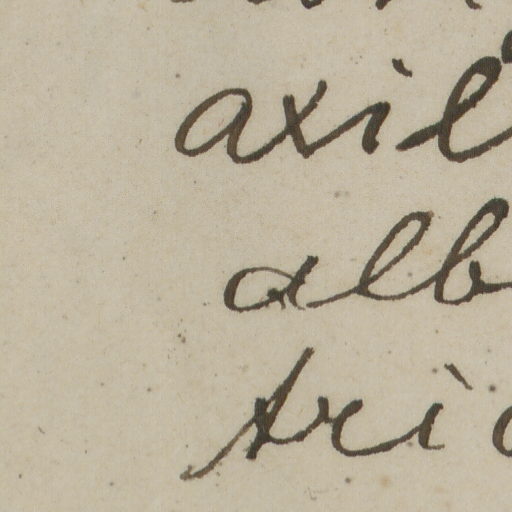 axil
alb
tric